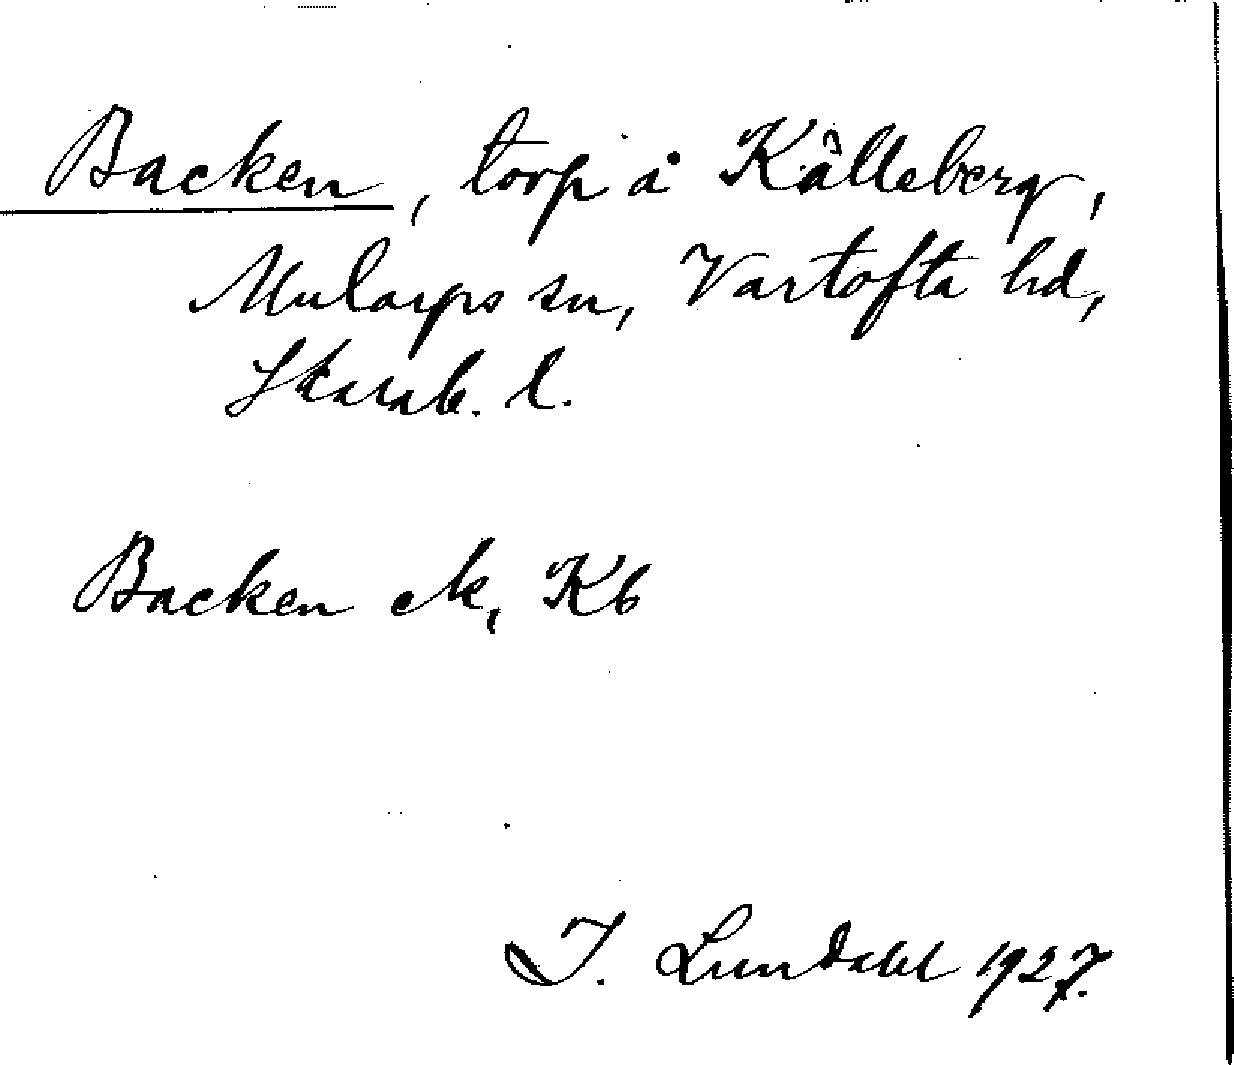 Backen, torp å Kålleberg,
Mularps sn, Vartofta hd,
Skarab. l.
Backen ek, Kb
I. Lundahl 1927.